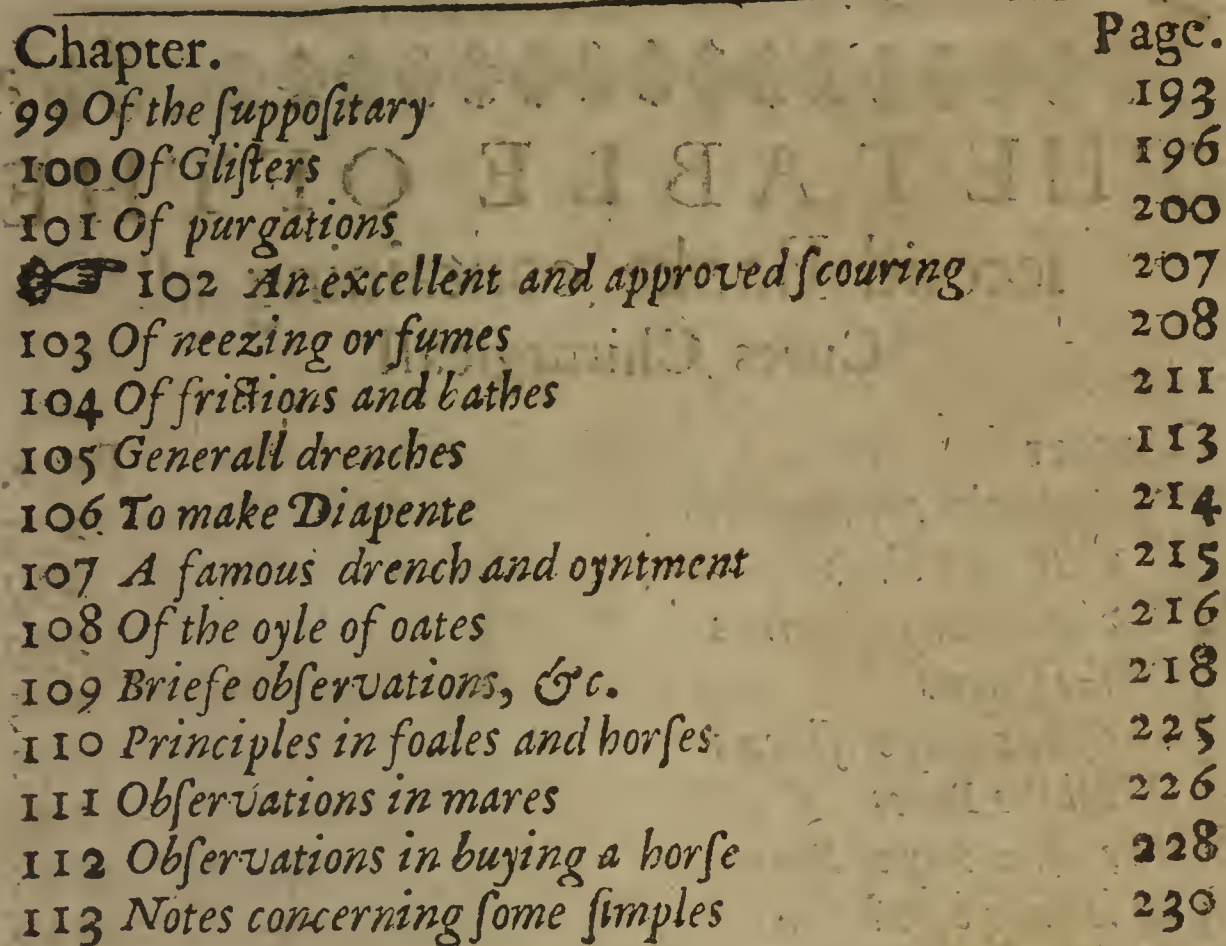 Chapter. Page.
99 Of the ſuppoſitary 193
100 Of Gliſters 196
101 Of purgations 200
☞ 102 An excellent and approved ſcouring 207
103 Of neezing or fumes 208
104 Of frictions and bathes 211
105 Generall drenches 113
106 To make Diapente 214
107 A famous drench and oyntment 215
108 Of the oyle of oates 216
109 Briefe obſervations, &c. 218
110 Principles in foales and horſes 225
111 Obſervations in mares 226
112 Obſervations in buying a horſe 228
113 Notes concerning ſome ſimples 230